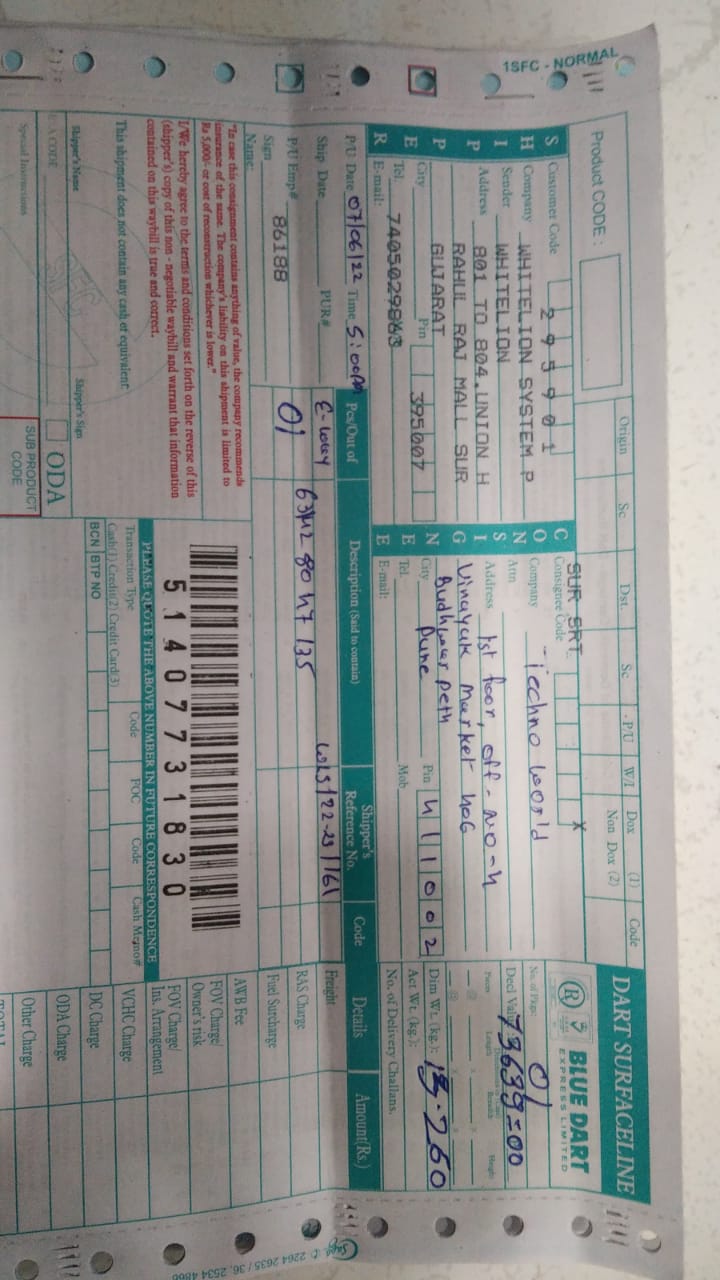 1SFC - NORMAL
DART SURFACELINE
BLUE DART
EXPRESS LIMITED
Product CODE :
Origin Sc Dst. Sc P/U W/I Dox (1) Code
Non Dox (2)
X
SUR SRT
SHIPPER
Customer Code 295901
Company WHITELION SYSTEM P
Sender WHITELION
Address 801 TO 804,UNION H
RAHUL RAJ MALL SUR
GUJARAT
City Pin 395007
Tel. 7405029863
E-mail:
CONSIGNEE
Consignee Code
Company Techno World
Attn
Address 1st floor, off-No-4
Vinayak Market 406
Budhwar Peth
City Pune Pin 411002
Tel. Mob
E-mail:
No. of Pkgs: 01
Decl Value 73639=00
Length Breadth Height
Dim Wt. (kg.):
Act Wt. (kg.): 13.260
No. of Delivery Challans.
P/U Date 07/06/22 Time 5:00PM
Ship Date PUR#
P/U Emp# 86188
Sign
Name
Pcs/Out of Description (Said to contain) Shipper's Reference No. Code Details Amount(Rs.)
E-way 6312 8047 135
WLS/22-23/1161
01
Freight
RAS Charge
Fuel Surcharge
AWB Fee
FOV Charge/
Owner's risk
FOV Charge/
Ins. Arrangement
VCHC Charge
DC Charge
ODA Charge
Other Charge
TOTAL
"In case this consignment contains anything of value, the company recommends
insurance of the same. The company's liability on this shipment is limited to
Rs 5,000/- or cost of reconstruction whichever is lower."
I/We hereby agree to the terms and conditions set forth on the reverse of this
(shipper's) copy of this non - negotiable waybill and warrant that information
contained on this waybill is true and correct.
This shipment does not contain any cash or equivalent.
Shipper's Name Shipper's Sign
EA CODE
ODA
Special Instructions
SUB PRODUCT
CODE
51407731830
PLEASE QUOTE THE ABOVE NUMBER IN FUTURE CORRESPONDENCE
Transaction Type Code FOC Code Cash Memo#
Cash(1) Credit(2) Credit Card(3)
BCN BTP NO
2264 2635 / 36, 2534 4866